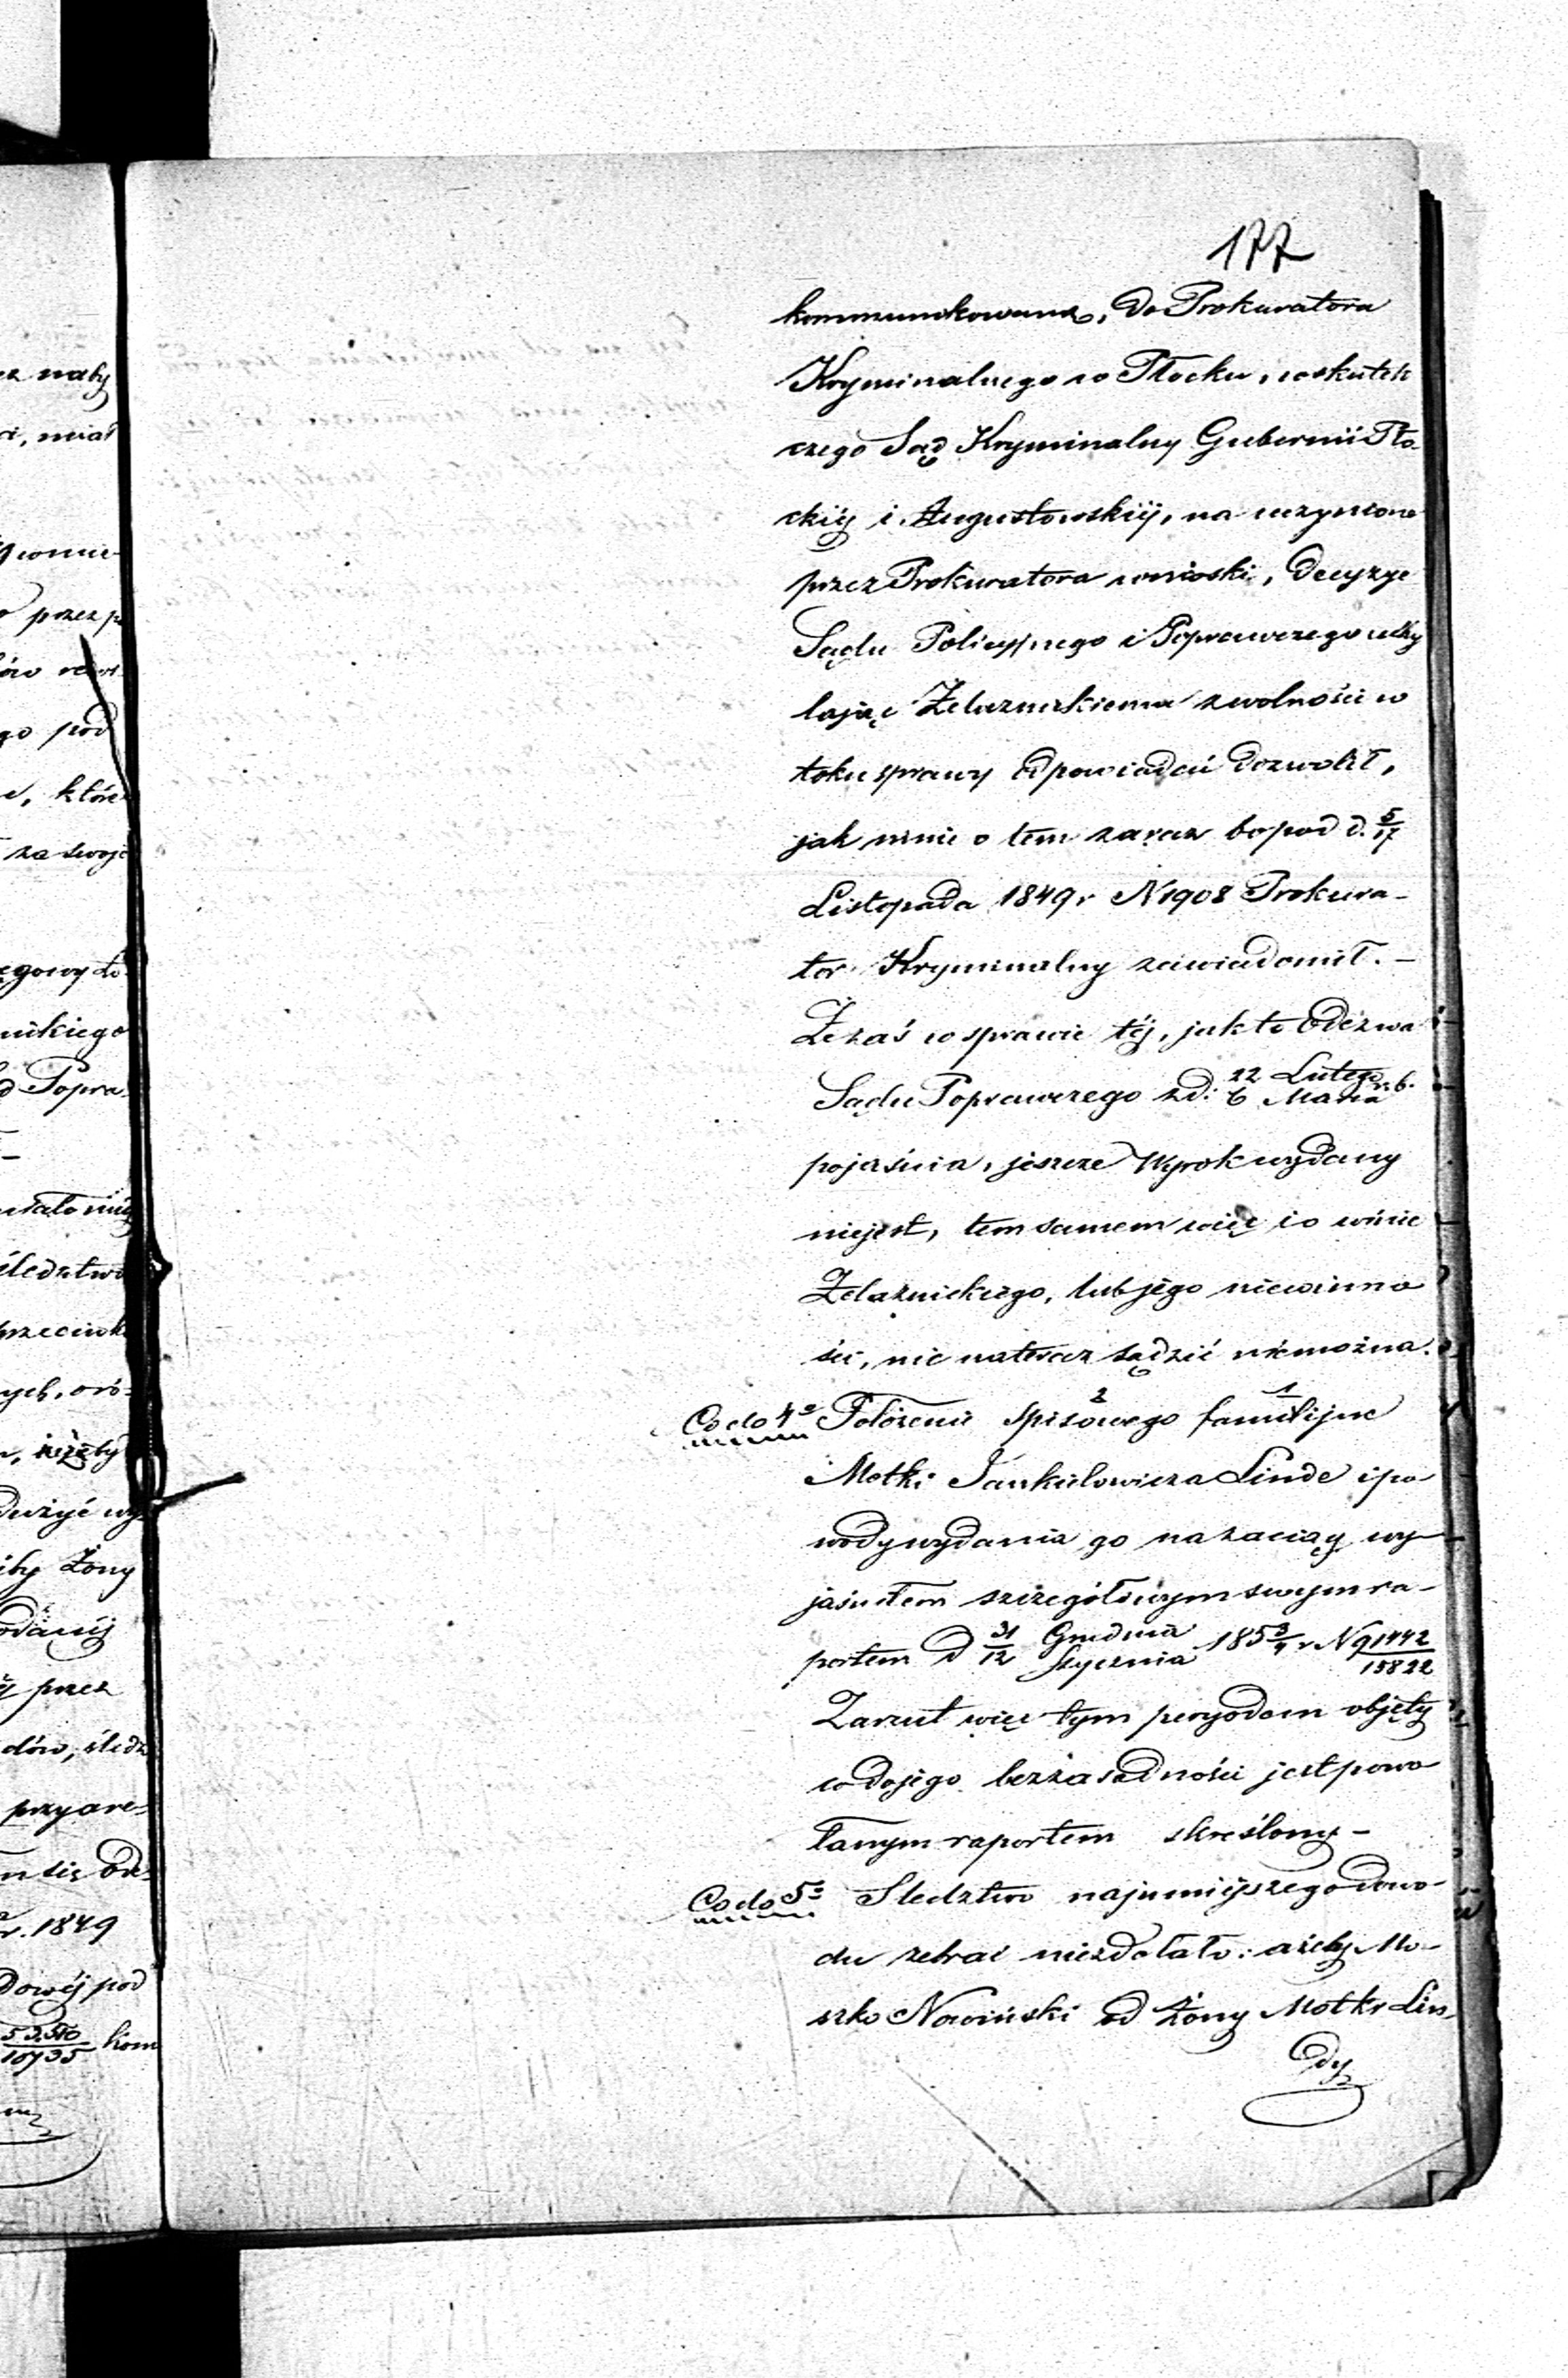 177
kommunikowaną, do Prokuratora
Kryminalnego w Płocku, wskutek
czego Sąd Kryminalny Gubernii Pło-
ckiéj i Augustowskiéj, na uczynione
przez Prokuratora wnioski, decyzye
Sądu Policyjnego i Poprawczego uchy
lając Żelaznickiemu z wolności w
toku sprawy odpowiadać dozwolił,
jak mnie o tem zaraz bo pod d. 5/17
Listopada 1849 r N 1908 Prokura-
tor Kryminalny zawiadomił. –
Że zaś w sprawie téj, jak to Odezwa
Sądu Poprawczego z d: 22 Lutego / 6 Marca r. b.
pojaśnia, jeszcze Wyrok wydany
niejest, tem samem więc i o winie
Żelaznickiego, lub jego niewinno
ści, nie nateraz sądzić niemożna.
Co do 4o Położenie Spisowego 2 familijne 1
Motki Jankielowicza Linde i po
wody wydania go na zaciąg wy-
jaśniłem szczegółowym swym ra-
portem d 31 Grudnia / 12 Stycznia 185 3/4 r N 91442/15822
Zarzut więc tym peryodem objęty
co do jego bezzasadności jest powo
łanym raportem skreślony –
Co do 5o Sledztwo najmniéjszego dowo-
du zebrać niezdołało: ażeby Mo-
szko Nowiński od Żony Motki Lin-
dy
ez należy
, miał
przez po
go pod
, które
za swoje
nickiego
d Popra-
śledztwo
przeciwk
żeby
Żony
przez
dów, śledz
przy are-
m się ode-
r. 1849
dowéj pod
53510/10735 kom